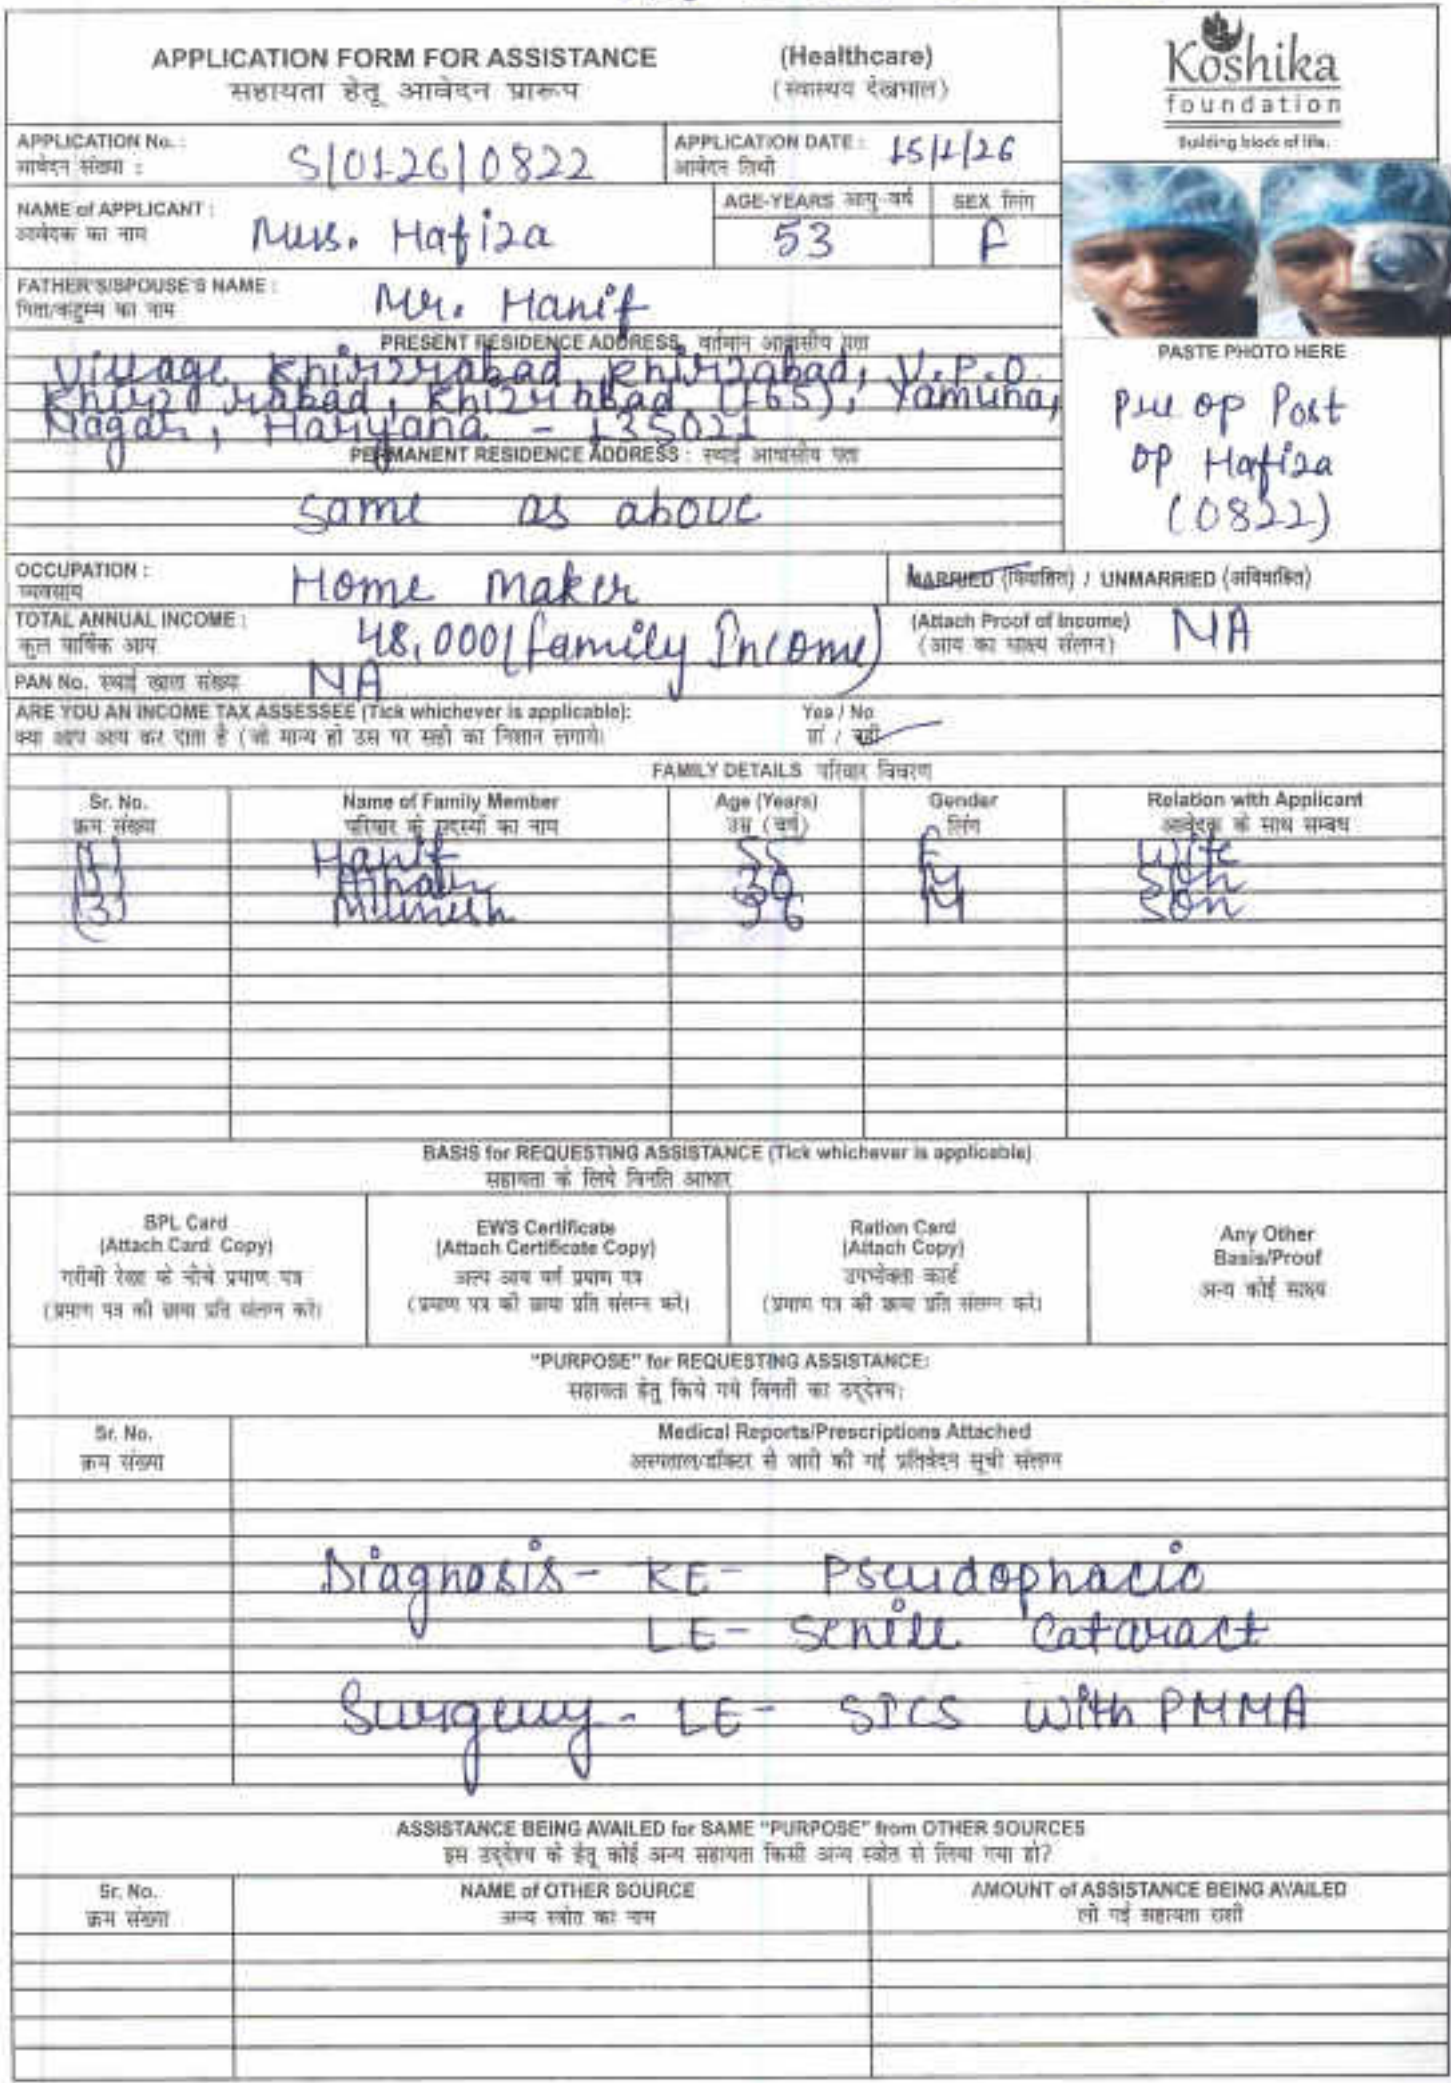 APPLICATION FORM FOR ASSISTANCE (Healthcare)
सहायता हेतू आवेदन प्रारूप (स्वास्थय देखभाल)
Koshika
foundation
Building block of life.
APPLICATION No. : S/0126/0822 APPLICATION DATE : 15/1/26
आवेदन संख्या : आवेदन तिथी
NAME of APPLICANT : Mrs. Hafiza AGE-YEARS आयु-वर्ष 53 SEX लिंग F
आवेदक का नाम
FATHER'S/SPOUSE'S NAME : Mr. Hanif
पिता/कुटुम्ब का नाम
PRESENT RESIDENCE ADDRESS वर्तमान आवासीय पता
Village Khizrabad, V.P.O.
Khizrabad (165), Yamuna
Nagar, Haryana - 135021
PERMANENT RESIDENCE ADDRESS : स्थाई आवासीय पता
Same as above
PASTE PHOTO HERE
Pre op Post
op Hafiza
(0822)
OCCUPATION : Home Maker MARRIED (विवाहित) / UNMARRIED (अविवाहित)
व्यवसाय
TOTAL ANNUAL INCOME : 48,000 (family Income) (Attach Proof of Income) NA
कुल वार्षिक आय (आय का साक्ष्य संलग्न)
PAN No. स्थाई खाता संख्या NA
ARE YOU AN INCOME TAX ASSESSEE (Tick whichever is applicable): Yes / No
क्या आप आय कर दाता है (जो मान्य हो उस पर सही का निशान लगाये) हां / नहीं
FAMILY DETAILS परिवार विवरण
Sr. No. Name of Family Member Age (Years) Gender Relation with Applicant
क्रम संख्या परिवार के सदस्यों का नाम उम्र (वर्ष) लिंग आवेदक के साथ सम्बंध
(1) Hanif 55 F Wife
30 M Son
(3) Munesh 36 M Son
BASIS for REQUESTING ASSISTANCE (Tick whichever is applicable)
सहायता के लिये विनति आधार
BPL Card
(Attach Card Copy)
गरीबी रेखा के नीचे प्रमाण पत्र
(प्रमाण पत्र की छाया प्रति संलग्न करे)
EWS Certificate
(Attach Certificate Copy)
अल्प आय वर्ग प्रमाण पत्र
(प्रमाण पत्र की छाया प्रति संलग्न करे)
Ration Card
(Attach Copy)
उपभोक्ता कार्ड
(प्रमाण पत्र की छाया प्रति संलग्न करे)
Any Other
Basis/Proof
अन्य कोई साक्ष्य
"PURPOSE" for REQUESTING ASSISTANCE:
सहायता हेतु किये गये विनती का उद्देश्य:
Sr. No. Medical Reports/Prescriptions Attached
क्रम संख्या अस्पताल/डॉक्टर से जारी की गई प्रतिवेदन सूची संलग्न
Diagnosis - RE - Pseudophacic
LE - Senile Cataract
Surgery - LE - SICS with PMMA
ASSISTANCE BEING AVAILED for SAME "PURPOSE" from OTHER SOURCES
इस उद्देश्य के हेतू कोई अन्य सहायता किसी अन्य स्त्रोत से लिया गया हो?
Sr. No. NAME of OTHER SOURCE AMOUNT of ASSISTANCE BEING AVAILED
क्रम संख्या अन्य स्त्रोत का नाम ली गई सहायता राशी